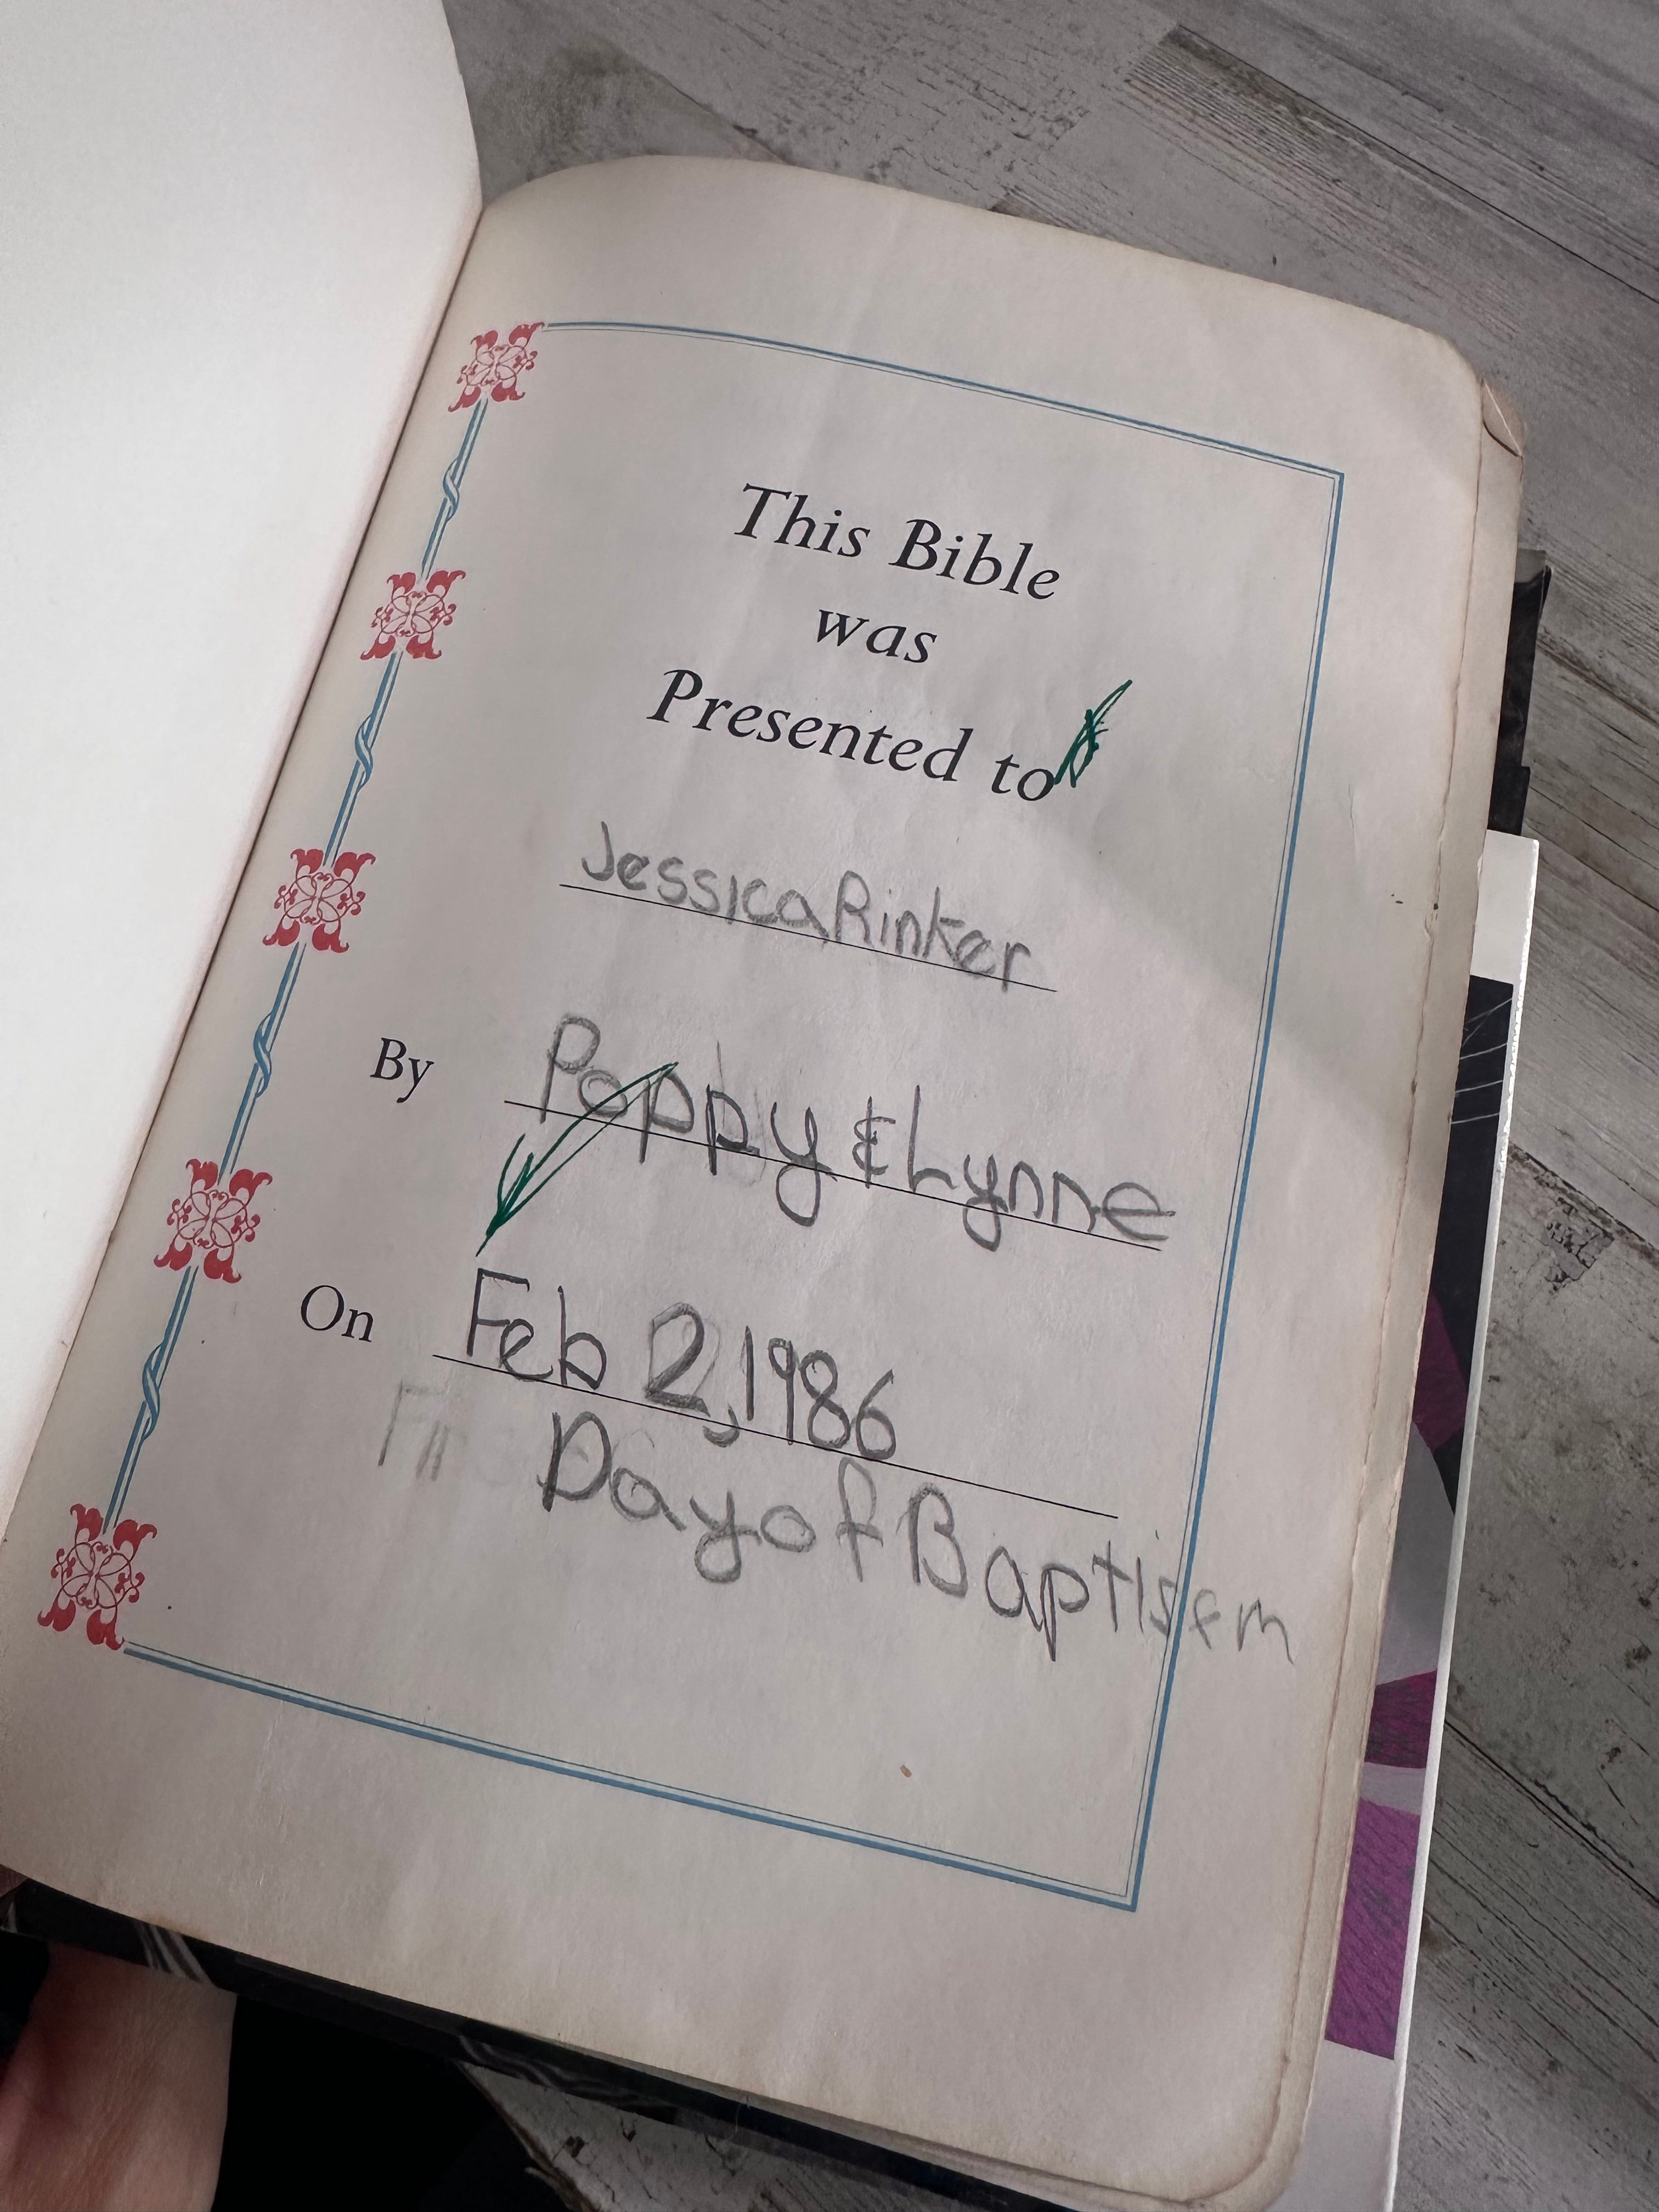 This Bible
was
Presented to
Jessica Rinker
By Poppy & Lynne
On Feb 2, 1986
Day of Baptisem